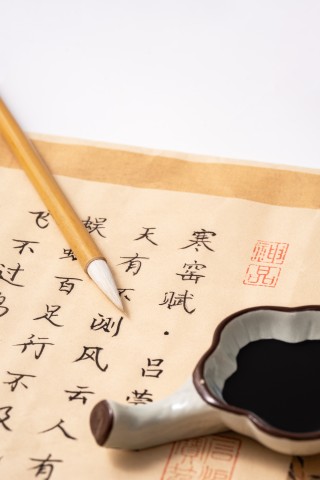 神品
寒窑赋·吕蒙
天有不测风云人有
蜈蚣百足行不及
飞不过鸟